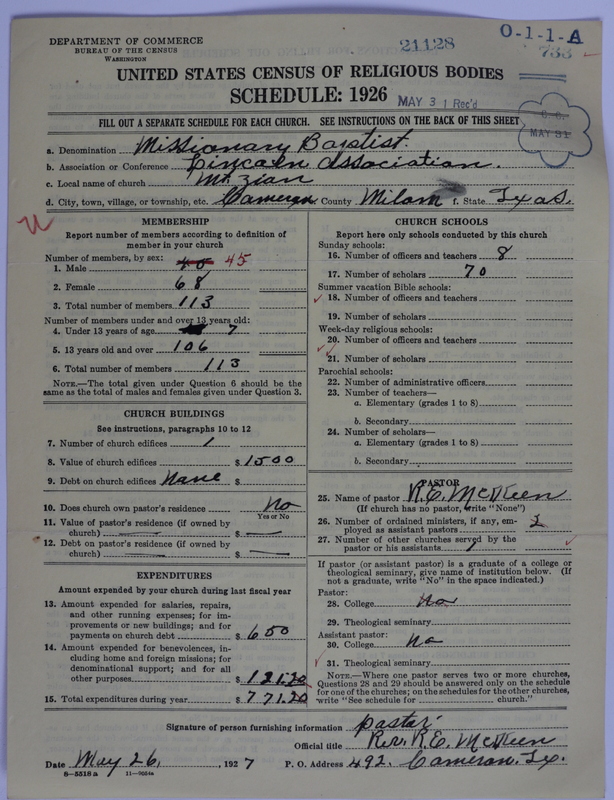 DEPARTMENT OF COMMERCE
BUREAU OF THE CENSUS
WASHINGTON
21128
O-1-1-A
733
UNITED STATES CENSUS OF RELIGIOUS BODIES
SCHEDULE: 1926
MAY 3 1 Rec'd
MAY 31
FILL OUT A SEPARATE SCHEDULE FOR EACH CHURCH. SEE INSTRUCTIONS ON THE BACK OF THIS SHEET
a. Denomination Missionary Baptist.
b. Association or Conference Lincoln Association.
c. Local name of church Mt. Zian
d. City, town, village, or township, etc. Cameron. County Milam f. State Texas.
MEMBERSHIP
Report number of members according to definition of member in your church
Number of members, by sex:
1. Male 45
2. Female 68
3. Total number of members 113
Number of members under and over 13 years old:
4. Under 13 years of age 7
5. 13 years old and over 106
6. Total number of members 113
NOTE.—The total given under Question 6 should be the
same as the total of males and females given under Question 3.
CHURCH BUILDINGS
See instructions, paragraphs 10 to 12
7. Number of church edifices 1
8. Value of church edifices $ 1500
9. Debt on church edifices None $
10. Does church own pastor's residence No
Yes or No
11. Value of pastor's residence (if owned by
church) $
12. Debt on pastor's residence (if owned by
church) $
EXPENDITURES
Amount expended by your church during last fiscal year
13. Amount expended for salaries, repairs,
and other running expenses; for im-
provements or new buildings; and for
payments on church debt $ 650
14. Amount expended for benevolences, in-
cluding home and foreign missions; for
denominational support; and for all
other purposes $ 121.20
15. Total expenditures during year $ 771.20
CHURCH SCHOOLS
Report here only schools conducted by this church
Sunday schools:
16. Number of officers and teachers 8
17. Number of scholars 70
Summer vacation Bible schools:
18. Number of officers and teachers
19. Number of scholars
Week-day religious schools:
20. Number of officers and teachers
21. Number of scholars
Parochial schools:
22. Number of administrative officers
23. Number of teachers—
a. Elementary (grades 1 to 8)
b. Secondary
24. Number of scholars—
a. Elementary (grades 1 to 8)
b. Secondary
PASTOR
25. Name of pastor R.E. McKeen
(If church has no pastor, write "None")
26. Number of ordained ministers, if any, em-
ployed as assistant pastors
27. Number of other churches served by the
pastor or his assistants
If pastor (or assistant pastor) is a graduate of a college or
theological seminary, give name of institution below. (If
not a graduate, write "No" in the space indicated.)
Pastor:
28. College No
29. Theological seminary
Assistant pastor:
30. College No
31. Theological seminary
NOTE.—Where one pastor serves two or more churches,
Questions 28 and 29 should be answered only on the schedule
for one of the churches; on the schedules for the other churches,
write "See schedule for church."
Signature of person furnishing information pastor
Official title Rev. R.E. McKeen
Date May 26, 1927 P. O. Address 492. Cameron. Tx.
8-5518 a 11-9034a